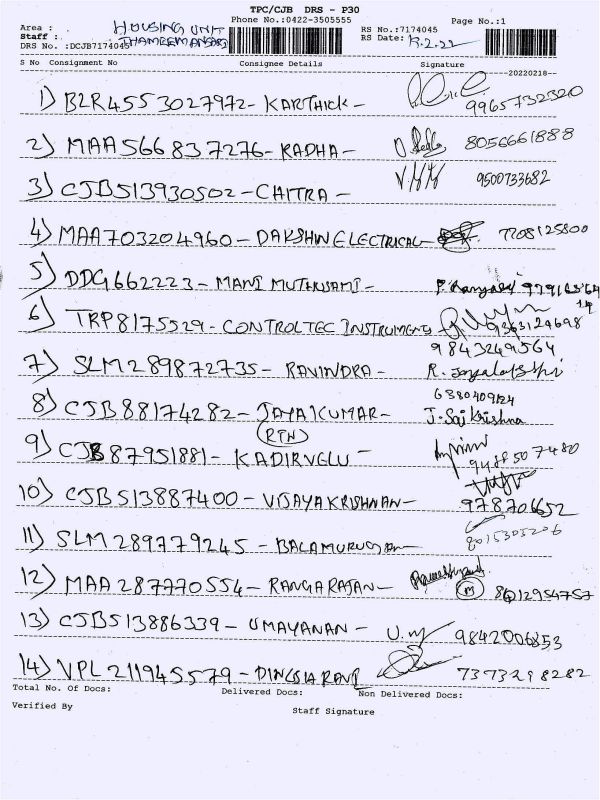 TPC/CJB DRS - P30
Area : HOUSING UNIT Phone No.:0422-3505555 Page No.:1
Staff : THAMEEMANSARI RS No.:7174045
DRS No. :DCJB7174045 RS Date: 18.2.22
S No Consignment No Consignee Details Signature
--20220218--
1) BLR4553027972- KARTHICK- 9965732320
2) MAA566837276- RADHA- 8056661888
3) CJB513930502- CHITRA- 9500733682
4) MAA703204960- DAKSHIN ELECTRICAL- 7708125800
5) DDG662223- MANI MUTHUSAMI-
6) TRP8175529- CONTROLTEC INSTRUMENTS 9363129698
9843249564
7) SLM289872735- RAVINDRA-
6380409124
8) CJB88174282- JAYAKUMAR- J. Sai Krishna
(RTN)
9) CJB87951881- KADIRVELU- 9488507480
10) CJB513887400- VIJAYAKRISHNAN- 978706652
11) SLM289779245- BALAMURUGAN 8015305206
12) MAA287770554- RANGARAJAN-
13) CJB513886339- UMAYANAN- 9842006853
14) VPL211945579- 7373298282
Total No. Of Docs: Delivered Docs: Non Delivered Docs:
Verified By Staff Signature